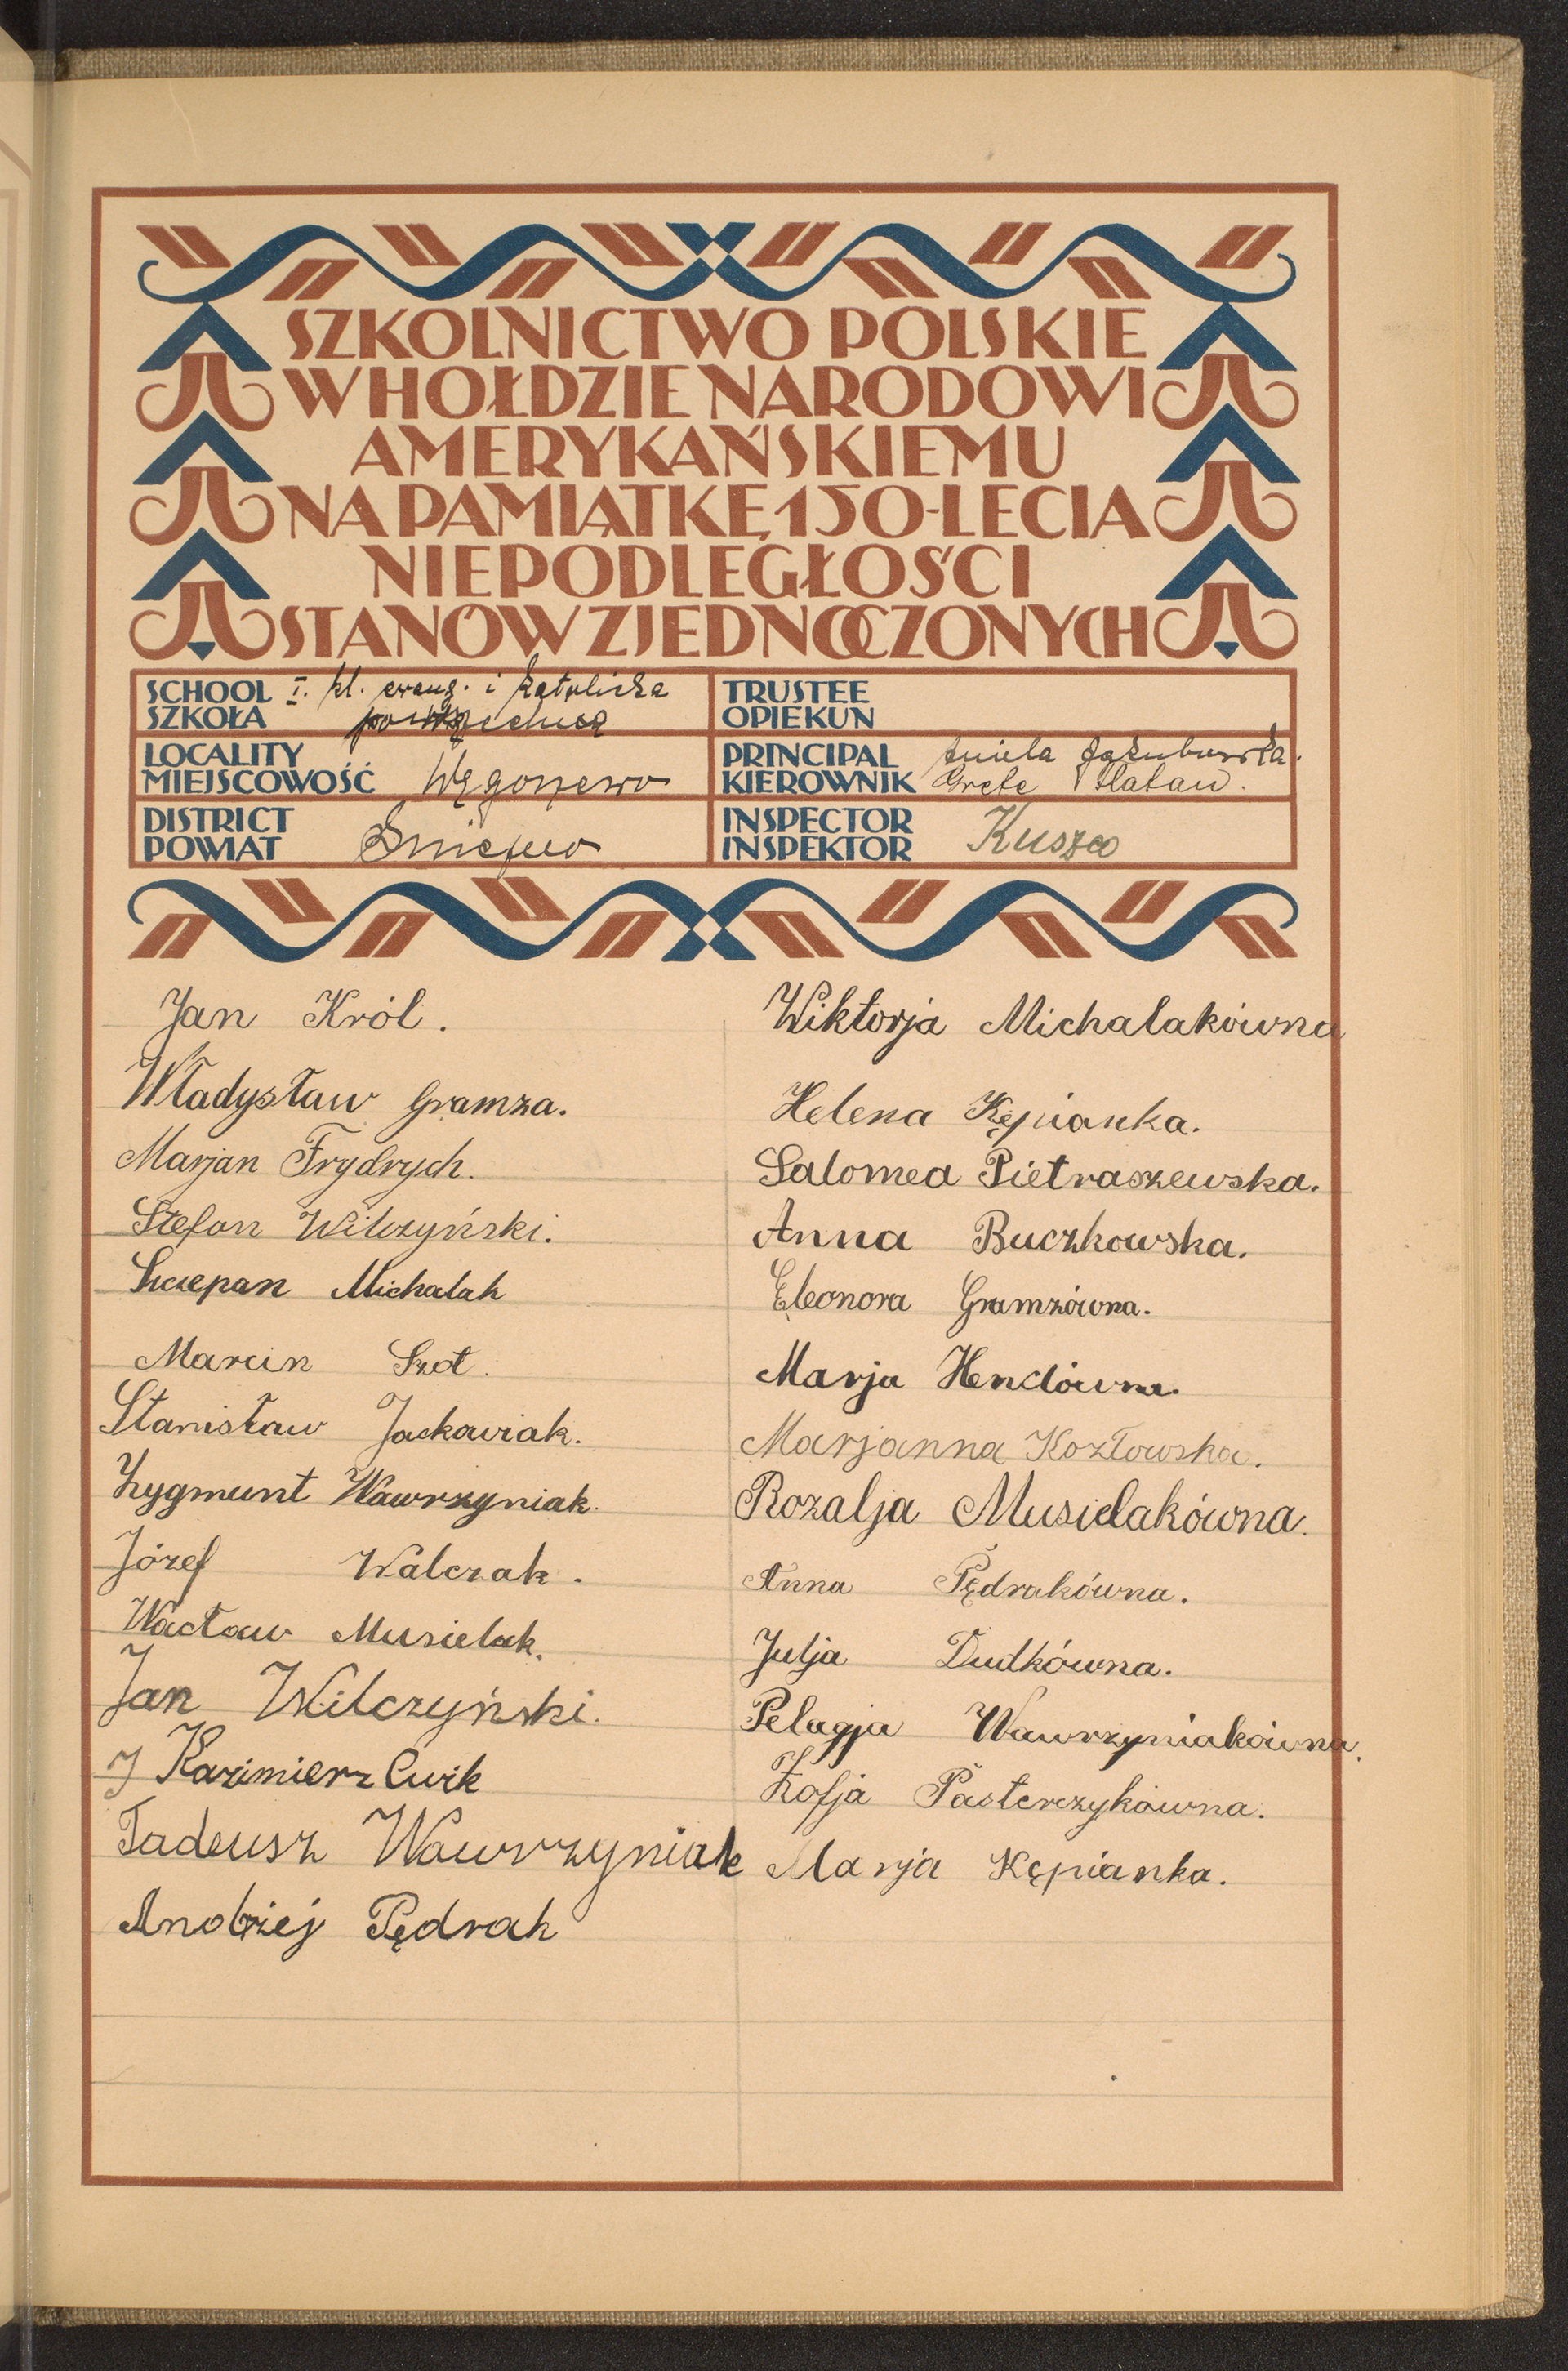 SZKOLNICTWO POLSKIE
W HOŁDZIE NARODOWI
AMERYKAŃSKIEMU
NA PAMIĄTKĘ 150-LECIA
NIEPODLEGŁOŚCI
STANÓW ZJEDNOCZONYCH
SCHOOL I. kl. ewang. i katolicka
SZKOŁA powszechna
TRUSTEE
OPIEKUN
LOCALITY
MIEJSCOWOŚĆ
PRINCIPAL Aniela
KIEROWNIK Grete
DISTRICT
POWIAT
INSPECTOR
INSPEKTOR
Jan Król.
Władysław Gramza.
Marjan Frydrych.
Stefan Wilczyński.
Szczepan Michalak
Marcin Szot.
Stanisław Jackowiak.
Zygmunt Wawrzyniak.
Józef Walczak.
Wacław Musielak.
Jan Wilczyński.
J Kazimierz Cwik
Tadeusz Wawrzyniak
Andrzej Pędrak
Wiktorja Michalakówna
Helena Kępianka.
Salomea Pietraszewska.
Anna Buczkowska.
Eleonora Gramzówna.
Marja Hendówna.
Marjanna Kozłowska.
Rozalja Musielakówna.
Anna Pędrakówna.
Julja Dudkówna.
Pelagja Wawrzyniakówna.
Zofja Pasterczykówna.
Marja Kępianka.